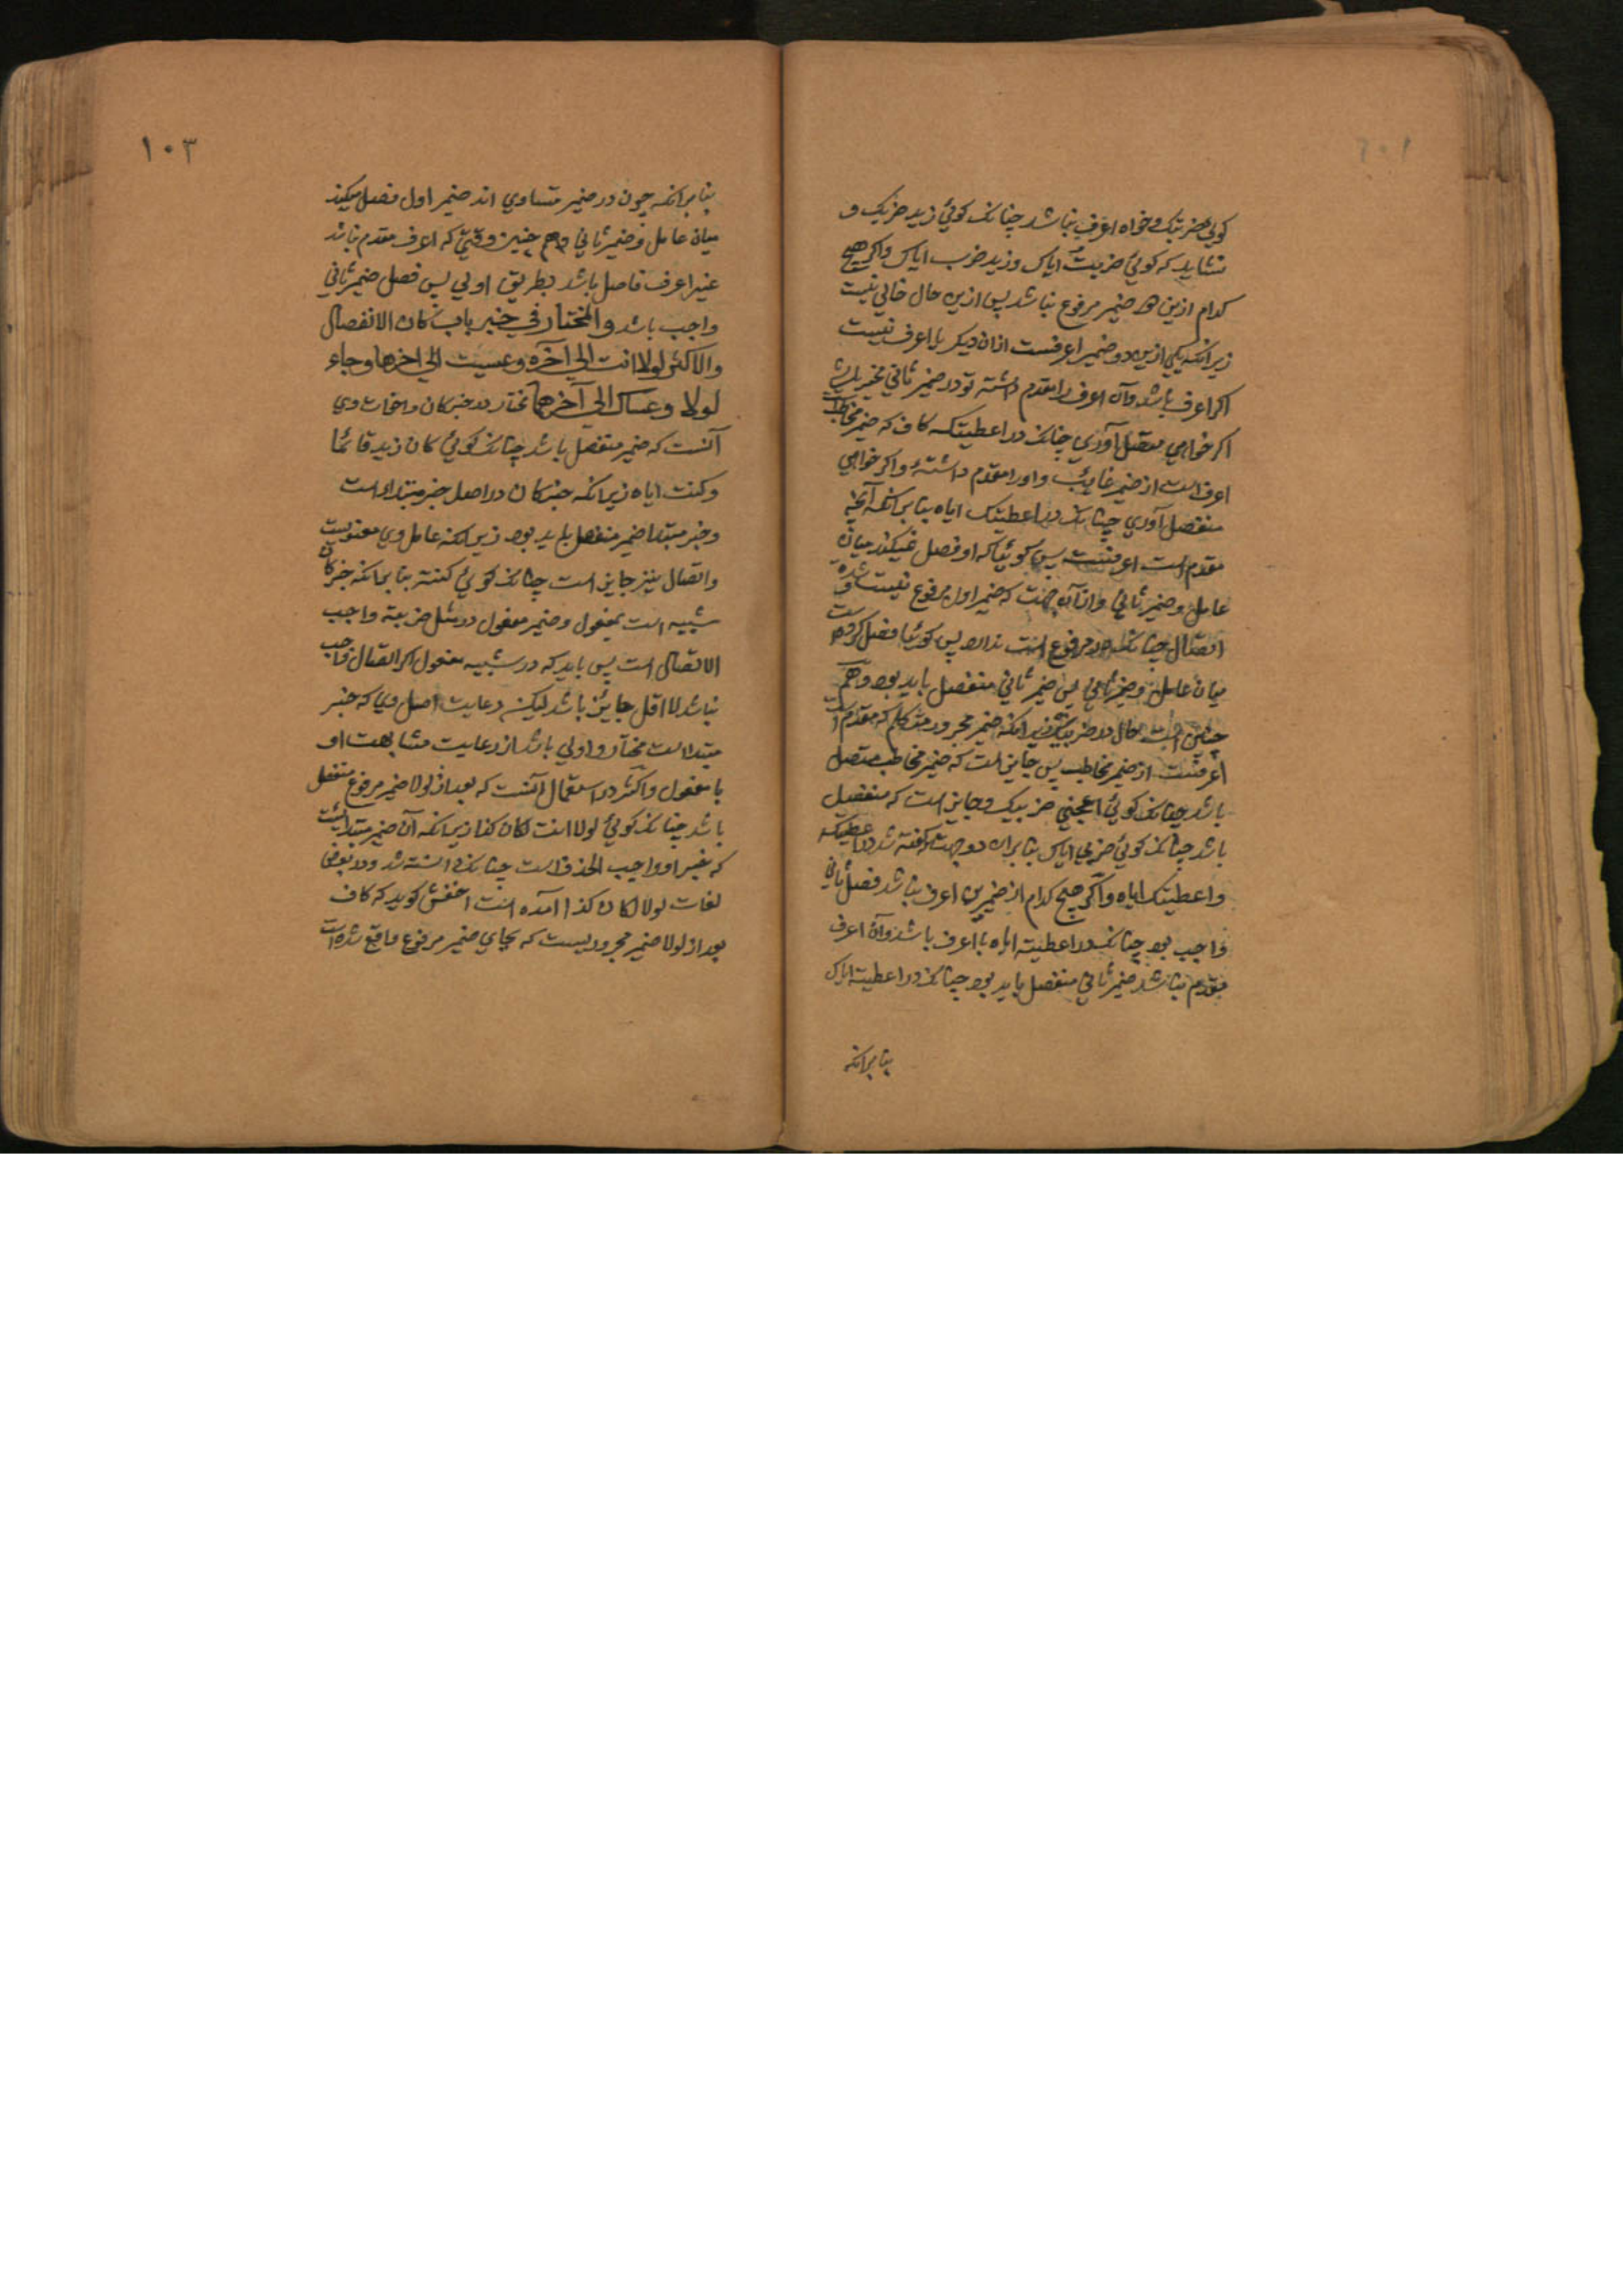 کویی ضربتک و خواه اعرف نباشد چنانک کوئی زید ضربک و
نشاید که کوئی ضربت ایاک و زید ضرب ایاک واکر هیچ
کدام ازین هر ضمیر مرفوع نباشد پس ازین حال خالی نیست
زیرانکه یکی ازین دو ضمیر اعرفست ازان دیکر یا اعرف نیست
اکر اعرف باشد وآن اعرف را مقدم داشته تو در ضمیر ثانی مخیر باش
اکر خواهی متصل آوری چنانک در اعطیتکه کاف که ضمیر مخاطب
اعرف است از ضمیر غایب و اورا مقدم داشتهٔ واکر خواهی
منفصل آوری چنانک در اعطیتک ایاه بنابرانکه آنچه
مقدم است اعرفست پس کوئیا که او فصل نمیکند میان
عامل و ضمیر ثانی وازآن جهت که ضمیر اول مرفوع نیست و شدة
اتصال چنانک در مرفوع است ندارد پس کوئیا فصل کرده است
میان عامل و ضمیر ثانی پس ضمیر ثانی منفصل باید بود وهم
چنین است حال در ضربیک زیرانکه ضمیر مجرور متکلم که مقدم است
اعرفست از ضمیر مخاطب پس جایز است که ضمیر مخاطب متصل
باشد چنانک کوئی اعجبنی ضربیک وجایز است که منفصل
باشد چنانک کوئی ضربی ایاک بنابران دو جهت که کفته شد در اعطیتکه
و اعطیتک ایاه واکر هیچ کدام از ضمیرین اعرف نباشد فصل ثانی
واجب بود چنانک در اعطیته ایاه یا اعرف باشد وآن اعرف
مقدم نباشد ضمیر ثانی منفصل باید بود چنانک در اعطیته ایاک
بنابرانکه
١٠٣
بنابرانکه چون در ضمیر متساوی اند ضمیر اول فصل میکند
میان عامل و ضمیر ثانی وهم چنین وقتی که اعرف مقدم نباشد
غیر اعرف فاصل باشد بطریق اولی پس فصل ضمیر ثانی
واجب باشد والمختار فی خبر باب کان الانفصال
والاکثر لولا انت الی آخره وعسیت الی اخرها وجاء
لولاک وعساک الی آخرهما مختار در خبر کان واخوات وی
آنست که ضمیر منفصل باشد چنانک کوئی کان زید قائما
وکنت ایاه زیرانکه خبر کان در اصل خبر مبتدا است
وخبر مبتدا ضمیر منفصل باید بود زیرانکه عامل وی معنویست
واتصال نیز جایز است چنانک کوئی کنته بنابرانکه خبر کان
شبیه است بمفعول وضمیر مفعول در مثل ضربته واجب
الاتصال است پس باید که در شبیه مفعول اکر اتصال واجب
نباشد لااقل جایز باشد لیکن رعایت اصل وی که خبر
مبتداست مختار واولی باشد از رعایت مشابهت او
بامفعول واکثر در استعمال آنست که بعد از لولا ضمیر مرفوع منفصل
باشد چنانک کوئی لولا انت لکان کذا زیرانکه آن ضمیر مبتدائیست
که خبر او واجب الحذف است چنانک دانسته شد ودر بعضی
لغات لولاک لکان کذا آمده است اخفش کوید که کاف
بعد از لولا ضمیر مجروریست که بجای ضمیر مرفوع واقع شده است